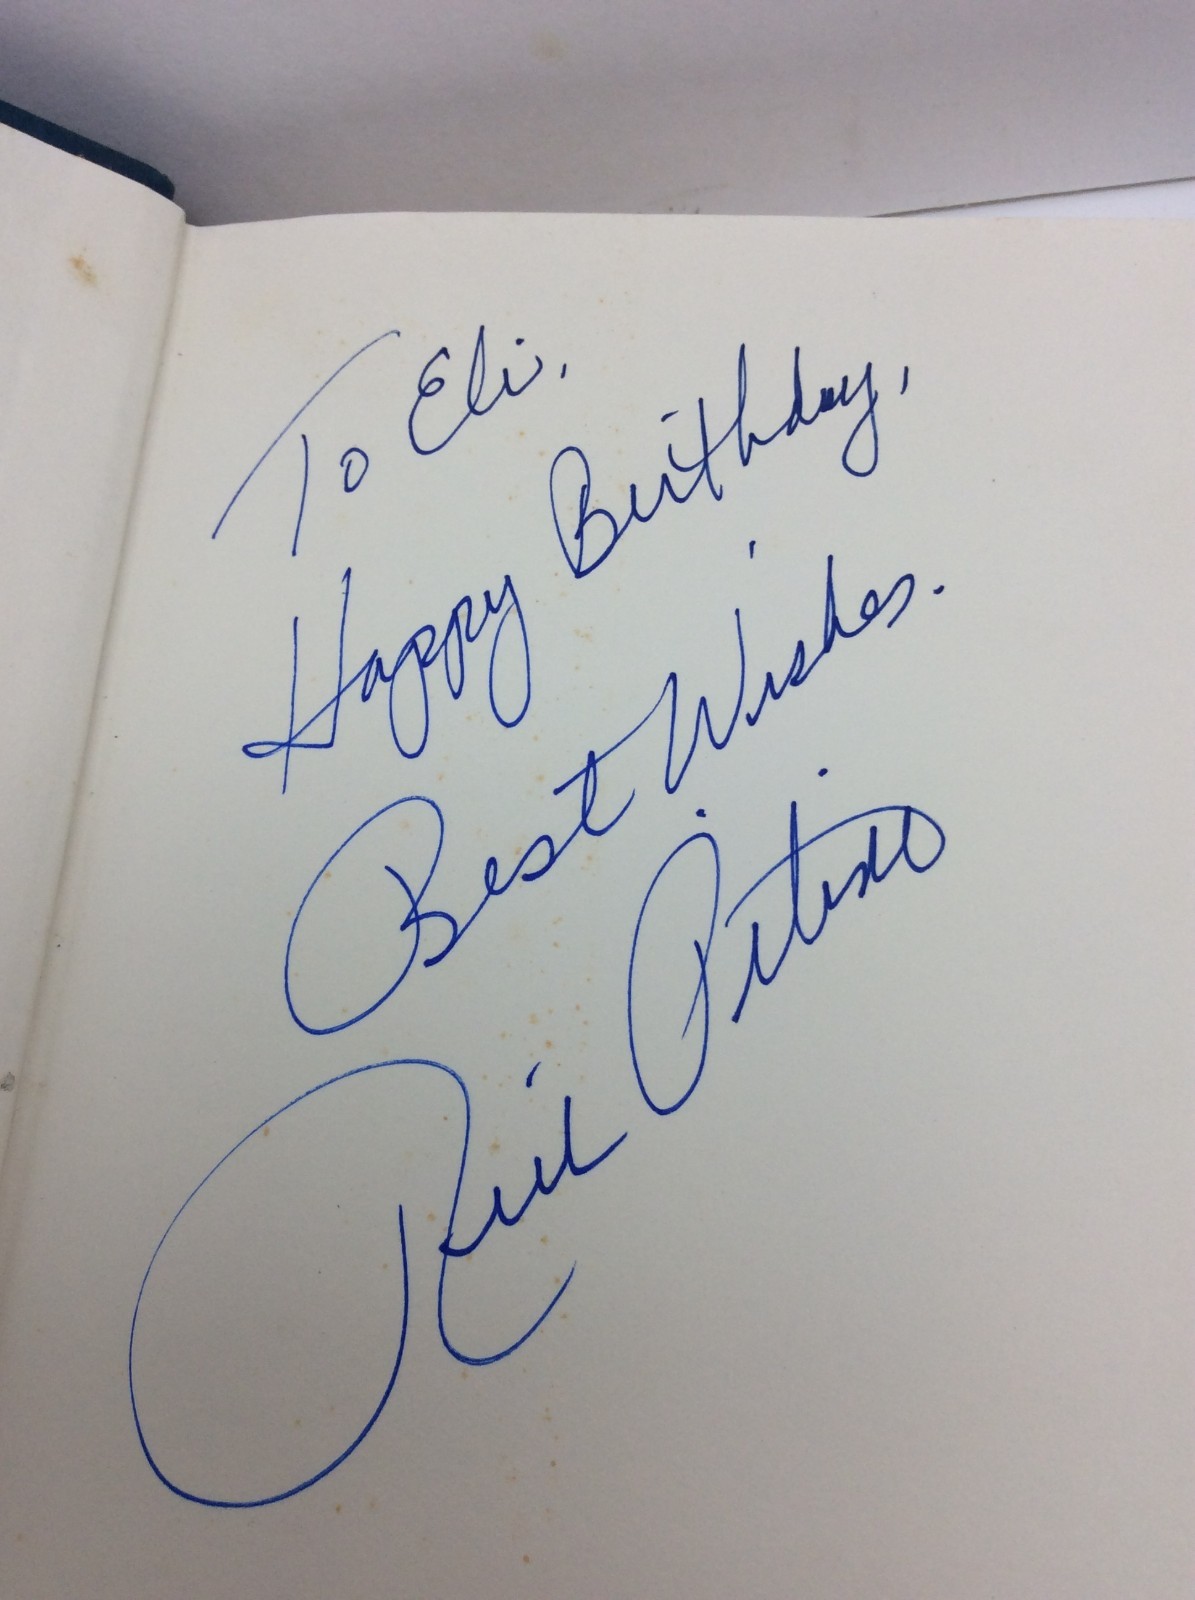 To Eli.
Happy Birthday,
Best Wishes.
Rick Pitino